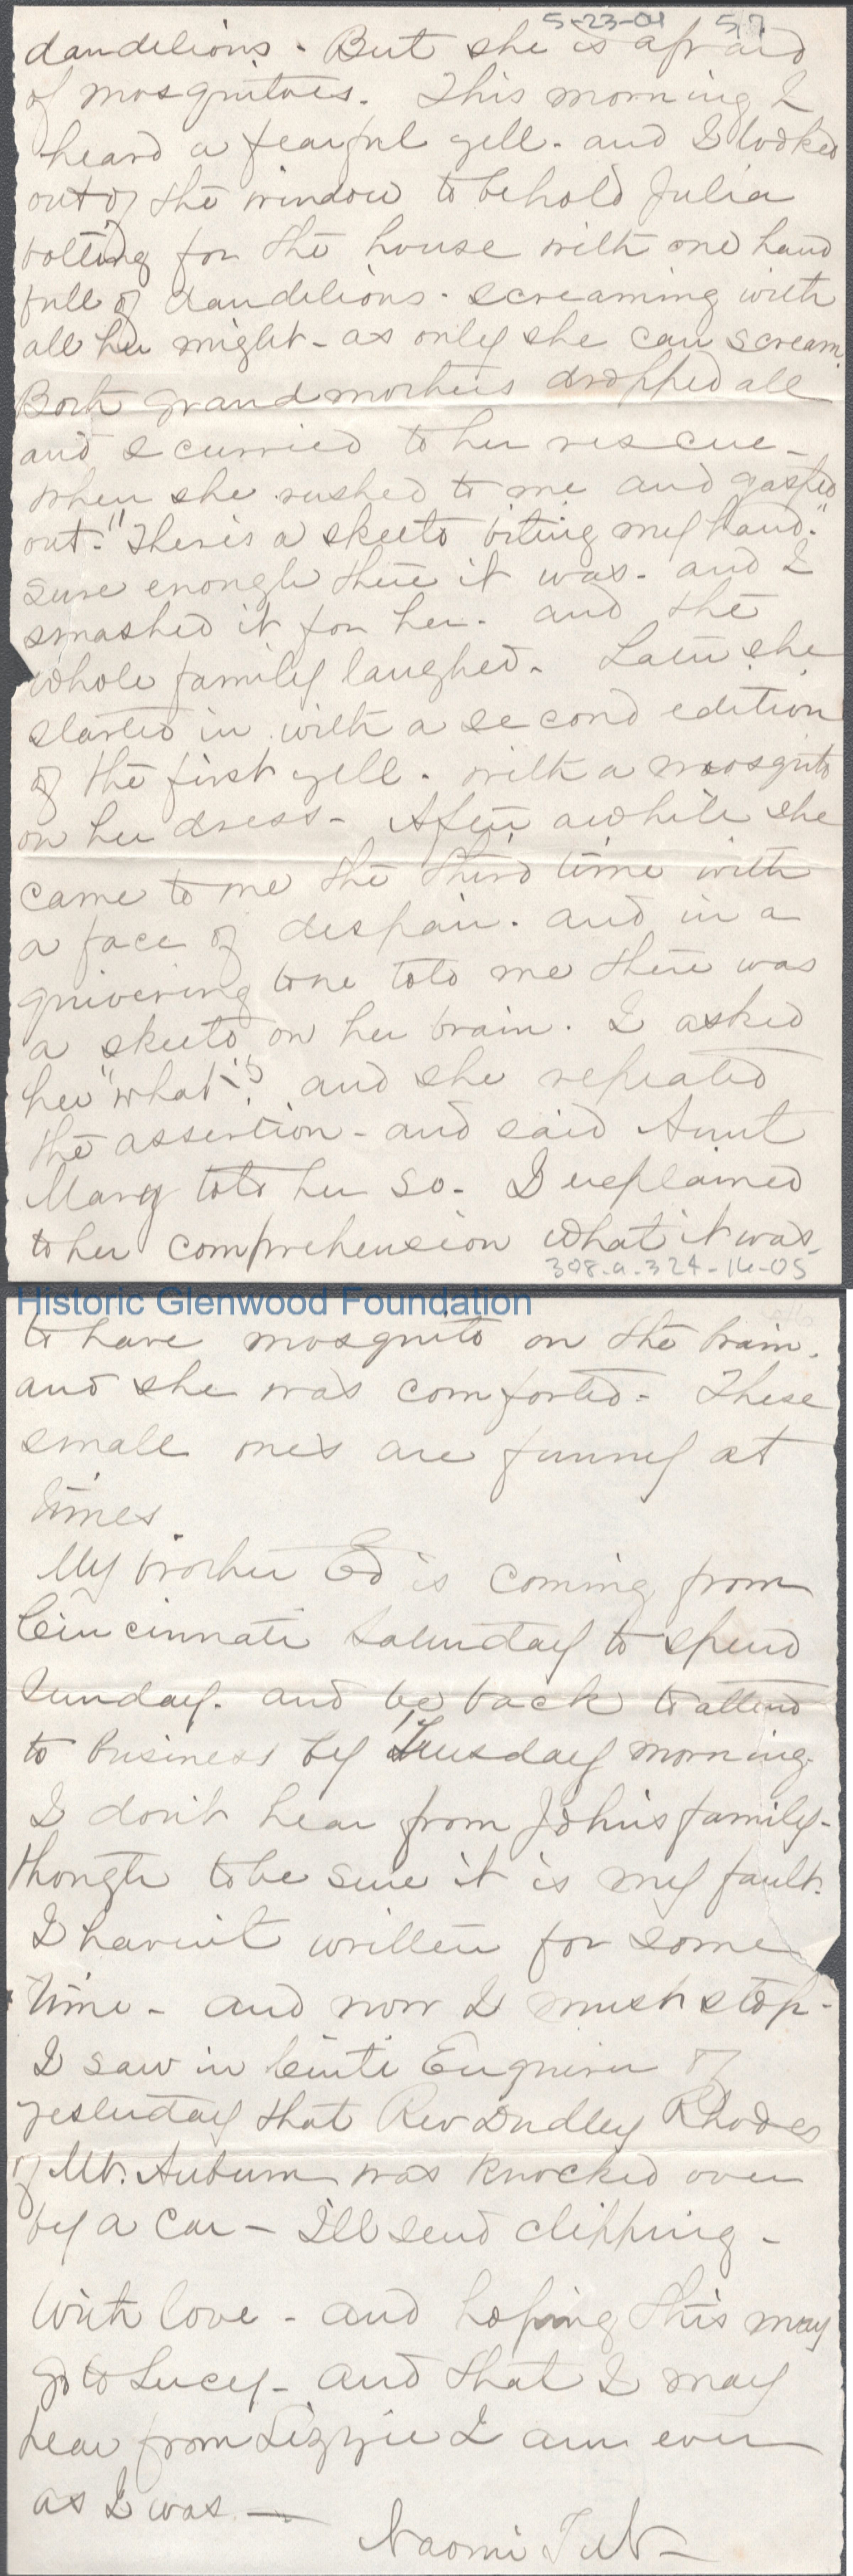 5-23-01 57
dandelions. But she is afraid
of mosquitoes. This morning I
heard a fearful yell. and I looked
out of the window to behold Julia
bolting for the house with one hand
full of dandelions. screaming with
all her might - as only she can scream.
Both grandmothers dropped all
and scurried to her rescue -
when she rushed to me and gasped
out. "There is a skeeto biting my hand."
sure enough there it was. and I
smashed it for her. and the
whole family laughed. Later she
started in with a second edition
of the first yell. with a mosquito
on her dress - After awhile she
came to me the third time with
a face of despair. and in a
quivering tone told me there was
a skeeto on her brain. I asked
her "what"? and she repeated
the assertion - and said Aunt
Mary told her so - I explained
to her comprehension what it was
308.a.324-16-05
Historic Glenwood Foundation
to have mosquito on the brain.
and she was comforted - These
small ones are funny at
times.
My brother Ed is coming from
Cincinnati Saturday to spend
Sunday. and be back to attend
to business by Tuesday morning.
I don't hear from John's family -
though to be sure it is my fault.
I haven't written for some
time - and now I must stop -
I saw in Cinti Enquirer of
yesterday that Rev Dudley Rhodes
of Mt. Auburn was knocked over
by a car - I'll send clipping -
With love - and hoping this may
go to Lucy - and that I may
hear from Lizzie I am ever
as I was -
Naomi